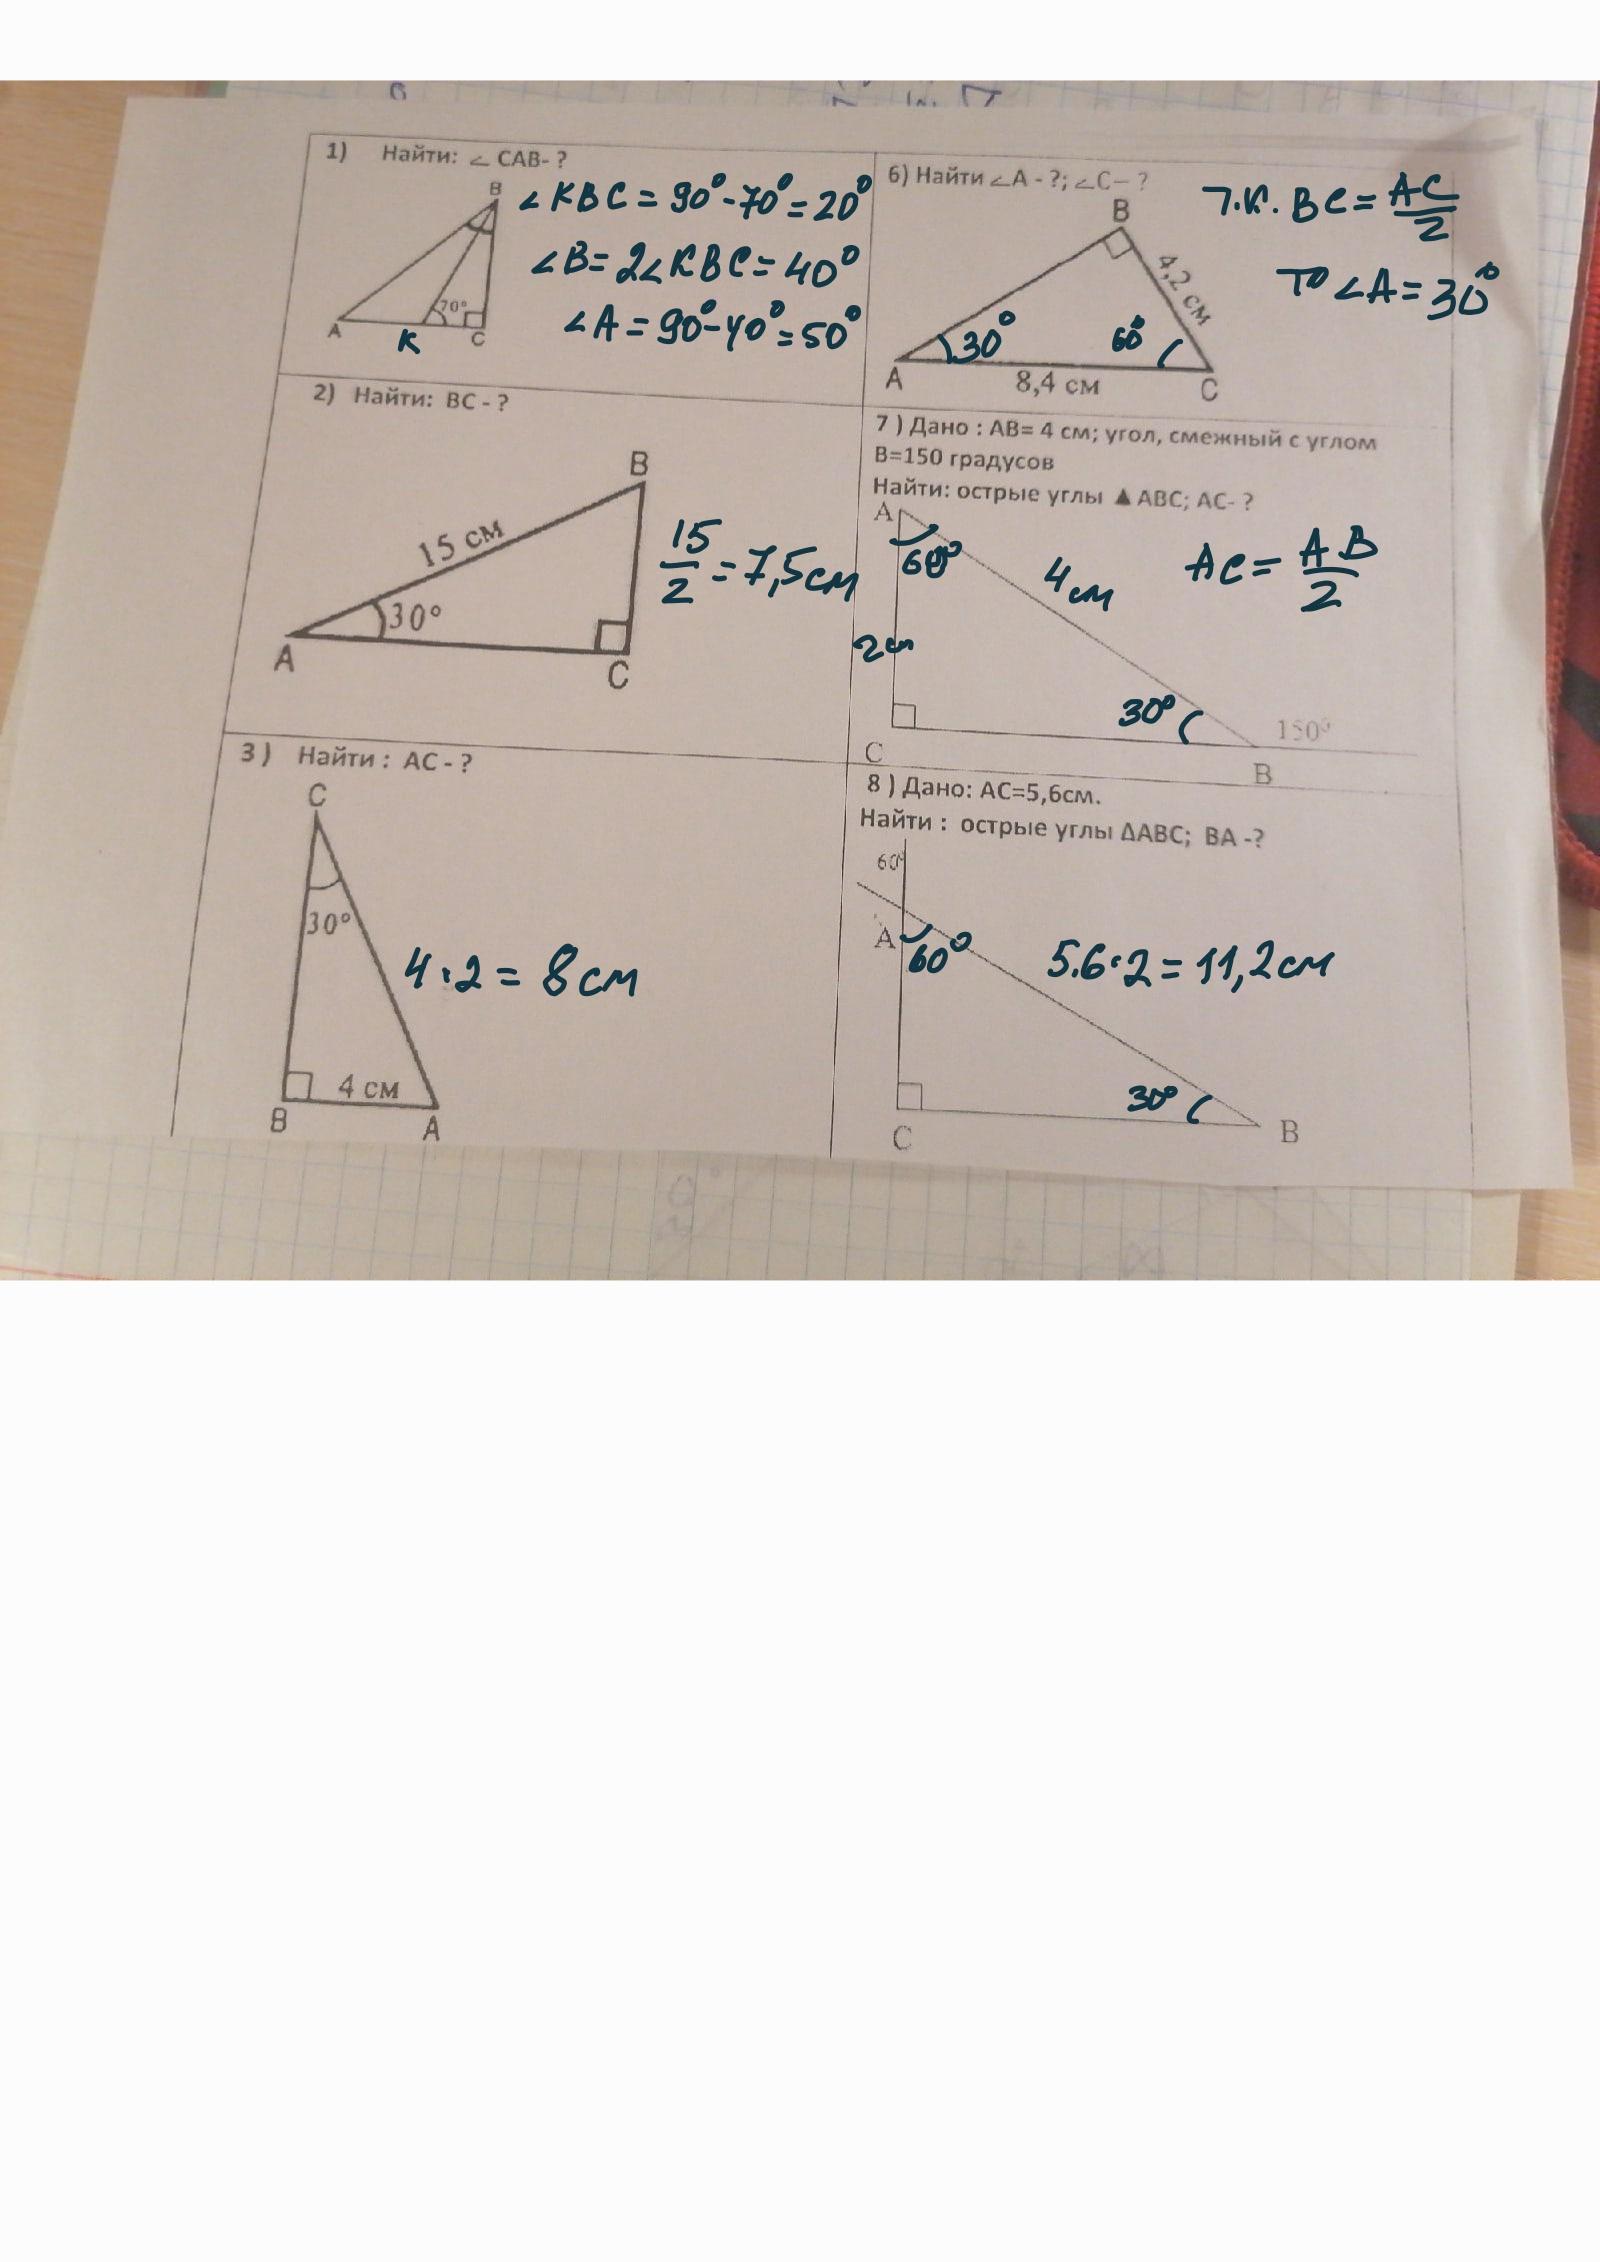 1) Найти: ∠ CAB- ?
B
∠KBC = 90° - 70° = 20°
∠B = 2∠KBC = 40°
∠A = 90° - 40° = 50°
70°
A
K
C
2) Найти: BC - ?
B
15 см
15/2 = 7,5 см
30°
A
C
3 ) Найти : AC - ?
C
30°
4 · 2 = 8 см
4 см
B
A
6) Найти ∠A - ?; ∠C – ?
B
т.к. BC = AC/2
то ∠A = 30°
4,2 см
30°
60°
A
8,4 см
C
7 ) Дано : AB= 4 см; угол, смежный с углом
B=150 градусов
Найти: острые углы ▲ABC; AC- ?
A
60°
4 см
AC = AB/2
2см
30°
150°
C
B
8 ) Дано: AC=5,6см.
Найти : острые углы ΔABC; BA -?
60°
A
60°
5.6 · 2 = 11,2 см
30°
C
B